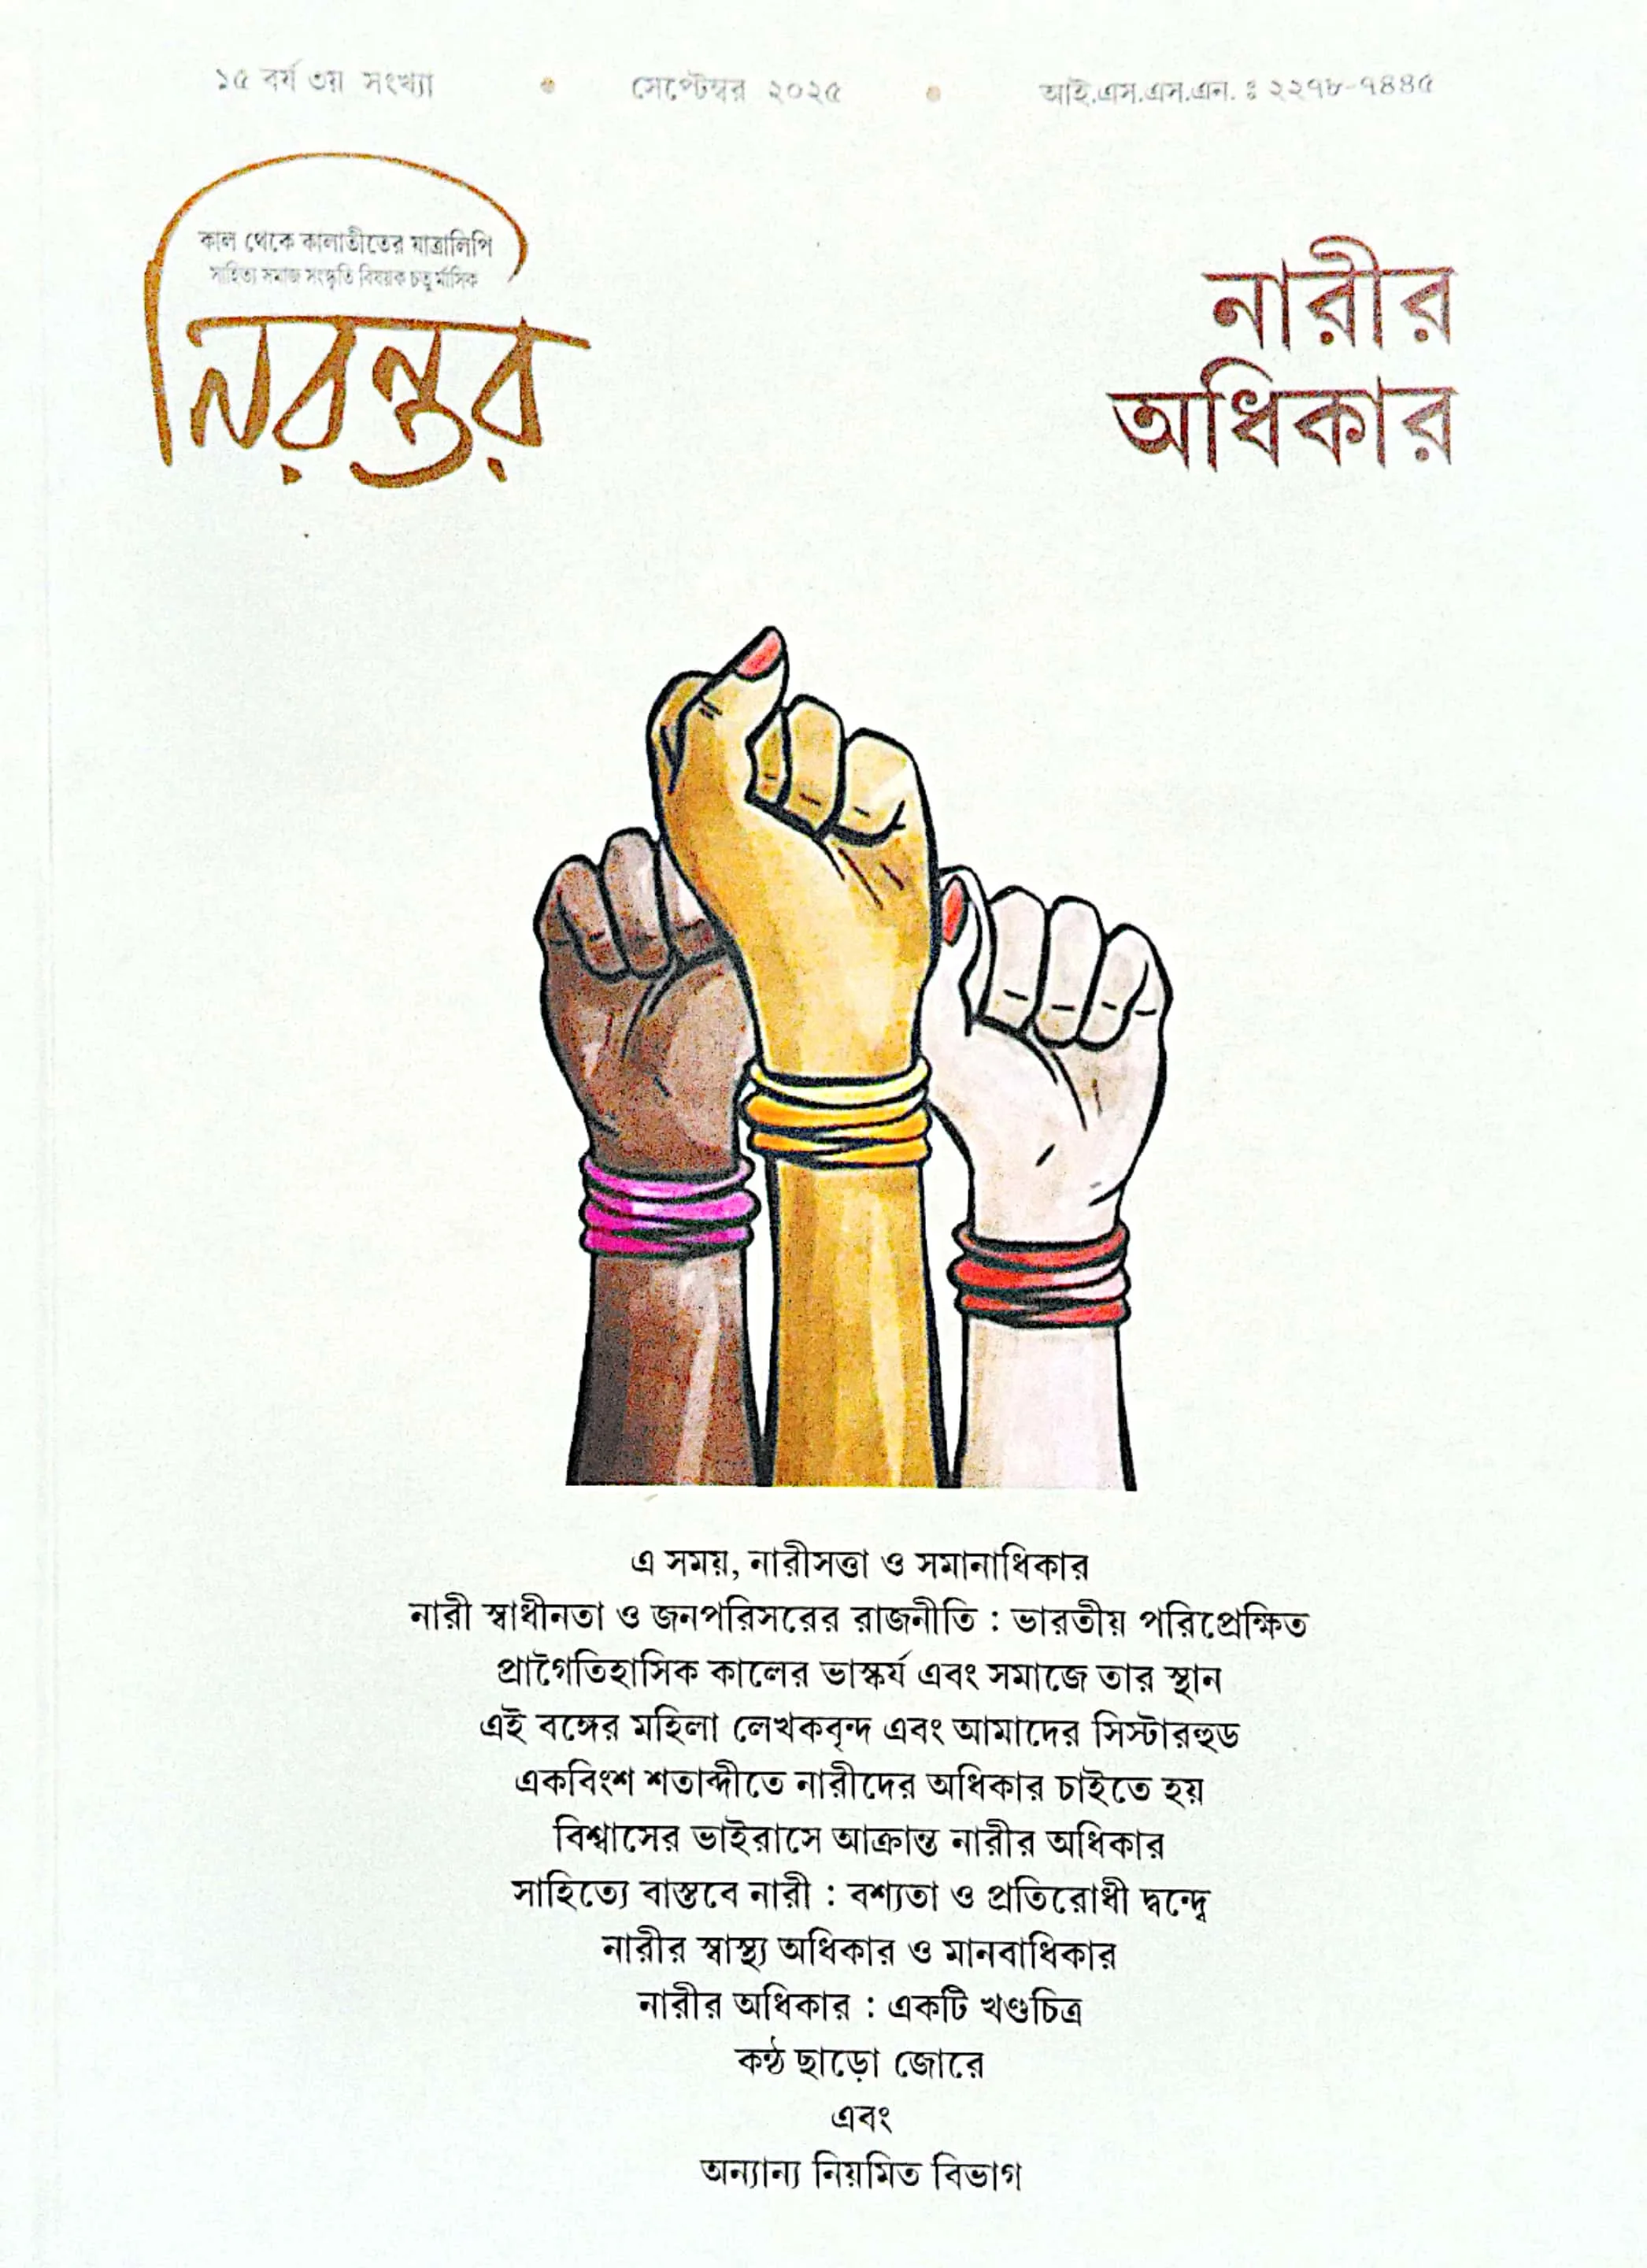 ১৫ বর্ষ ৩য় সংখ্যা • সেপ্টেম্বর ২০২৫ • আই.এস.এস.এন. ঃ ২২৭৮-৭৪৪৫
কাল থেকে কালাতীতের যাত্রালিপি
সাহিত্য সমাজ সংস্কৃতি বিষয়ক চতুর্মাসিক
নিরন্তর
নারীর
অধিকার
এ সময়, নারীসত্তা ও সমানাধিকার
নারী স্বাধীনতা ও জনপরিসরের রাজনীতি : ভারতীয় পরিপ্রেক্ষিত
প্রাগৈতিহাসিক কালের ভাস্কর্য এবং সমাজে তার স্থান
এই বঙ্গের মহিলা লেখকবৃন্দ এবং আমাদের সিস্টারহুড
একবিংশ শতাব্দীতে নারীদের অধিকার চাইতে হয়
বিশ্বাসের ভাইরাসে আক্রান্ত নারীর অধিকার
সাহিত্যে বাস্তবে নারী : বশ্যতা ও প্রতিরোধী দ্বন্দ্বে
নারীর স্বাস্থ্য অধিকার ও মানবাধিকার
নারীর অধিকার : একটি খণ্ডচিত্র
কন্ঠ ছাড়ো জোরে
এবং
অন্যান্য নিয়মিত বিভাগ